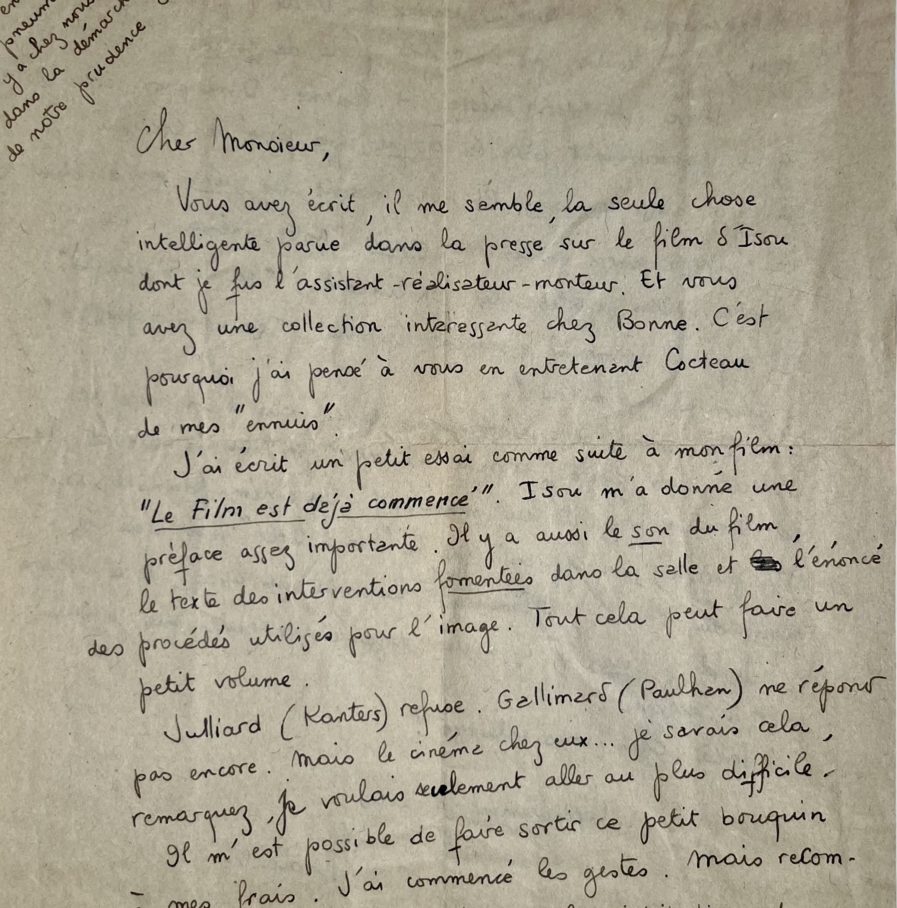 en
pneum
y a chez nous
dans la démarch
de notre prudence
Cher Monsieur,
Vous avez écrit, il me semble, la seule chose
intelligente parue dans la presse sur le film d'Isou
dont je fus l'assistant-réalisateur-monteur. Et vous
avez une collection interessante chez Bonne. C'est
pourquoi j'ai pensé à vous en entretenant Cocteau
de mes "ennuis".
J'ai écrit un petit essai comme suite à mon film :
"Le Film est déjà commencé". Isou m'a donné une
préface assez importante. Il y a aussi le son du film,
le texte des interventions fomentées dans la salle et l'énoncé
des procédés utilisés pour l'image. Tout cela peut faire un
petit volume.
Julliard (Kanters) refuse. Gallimard (Paulhan) ne répond
pas encore. Mais le cinéma chez eux... je savais cela,
remarquez, je voulais seulement aller au plus difficile.
Il m'est possible de faire sortir ce petit bouquin
mes frais. J'ai commencé les gestes. Mais recom-